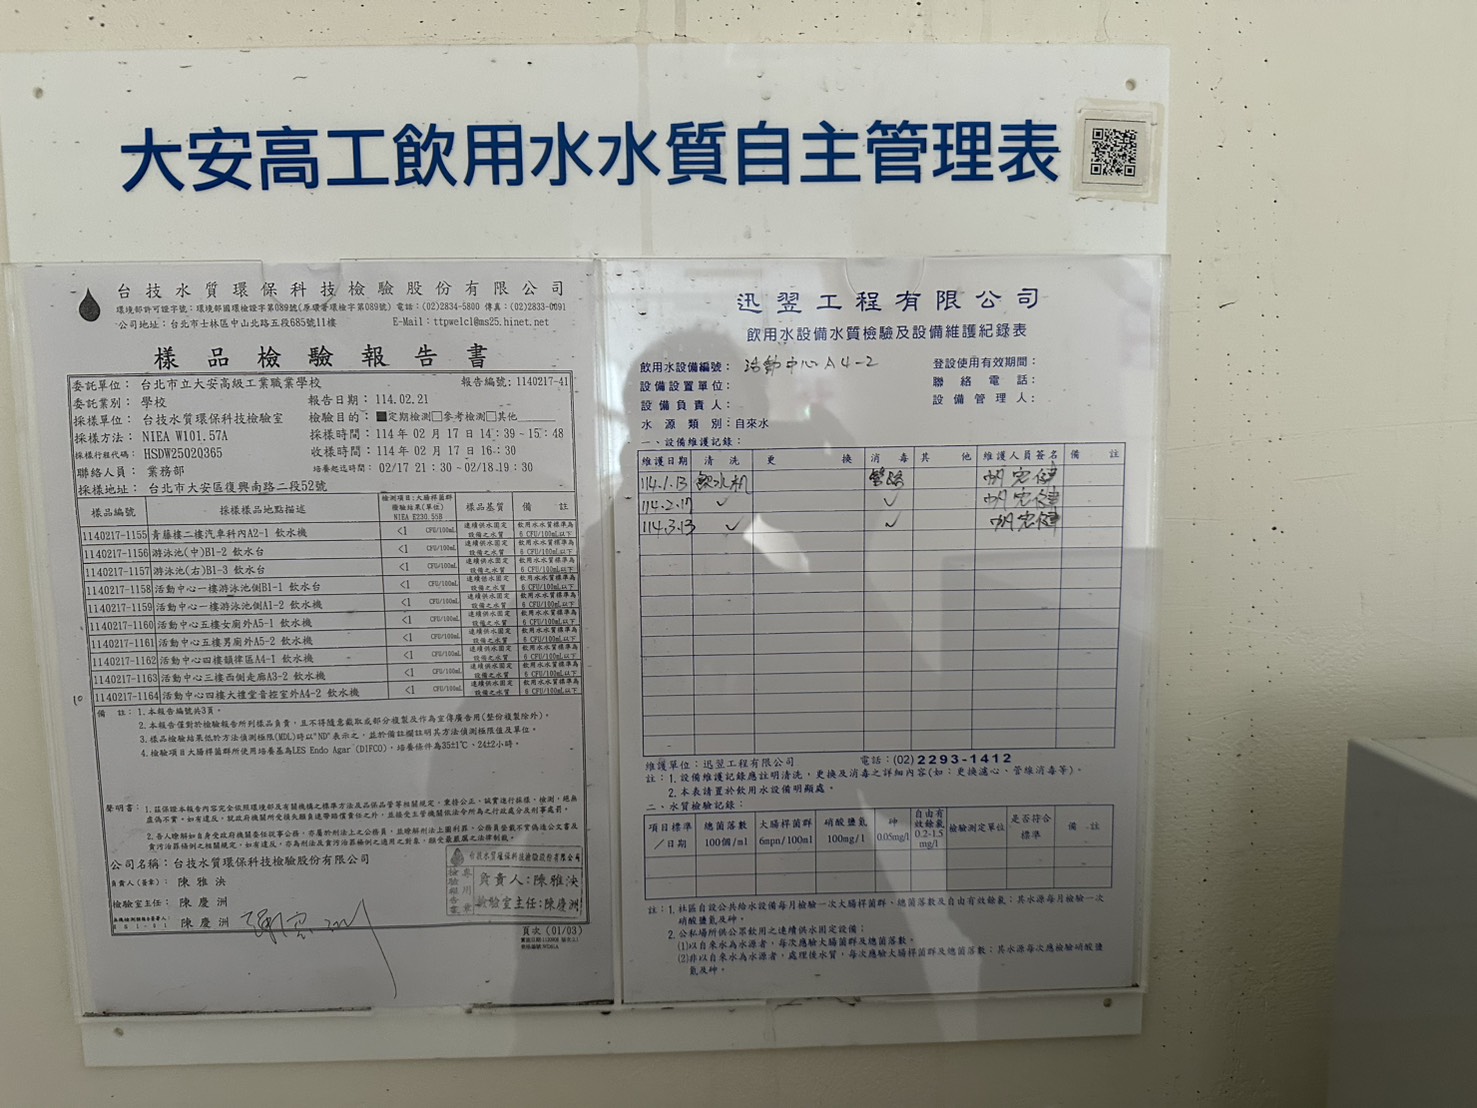 大安高工飲用水水質自主管理表
台技水質環保科技檢驗股份有限公司
環境部許可證字號：環境部國環檢證字第089號(原環署環檢字第089號) 電話：(02)2834-5800 傳真：(02)2833-0091
公司地址：台北市士林區中山北路五段685號11樓 E-Mail：ttpwelcl@ms25.hinet.net
樣品檢驗報告書
委託單位： 台北市立大安高級工業職業學校 報告編號：1140217-41
委託業別： 學校 報告日期：114.02.21
採樣單位： 台技水質環保科技檢驗室 檢驗目的：■定期檢測□參考檢測□其他
採樣方法： NIEA W101.57A 採樣時間：114 年 02 月 17 日 14：39～15：48
採樣行程代碼： HSDW25020365 收樣時間：114 年 02 月 17 日 16：30
聯絡人員： 業務部 培養起迄時間：02/17 21：30～02/18.19：30
採樣地址： 台北市大安區復興南路二段52號
樣品編號 採樣樣品地點描述 檢測項目:大腸桿菌群 檢驗結果(單位) NIEA E230.55B 樣品基質 備 註
1140217-1155 青藤樓二樓汽車科內A2-1 飲水機 <1 CFU/100mL 連續供水固定設備之水質 飲用水水質標準為6 CFU/100mL以下
1140217-1156 游泳池(中)B1-2 飲水台 <1 CFU/100mL 連續供水固定設備之水質 飲用水水質標準為6 CFU/100mL以下
1140217-1157 游泳池(右)B1-3 飲水台 <1 CFU/100mL 連續供水固定設備之水質 飲用水水質標準為6 CFU/100mL以下
1140217-1158 活動中心一樓游泳池側B1-1 飲水台 <1 CFU/100mL 連續供水固定設備之水質 飲用水水質標準為6 CFU/100mL以下
1140217-1159 活動中心一樓游泳池側A1-2 飲水機 <1 CFU/100mL 連續供水固定設備之水質 飲用水水質標準為6 CFU/100mL以下
1140217-1160 活動中心五樓女廁外A5-1 飲水機 <1 CFU/100mL 連續供水固定設備之水質 飲用水水質標準為6 CFU/100mL以下
1140217-1161 活動中心五樓男廁外A5-2 飲水機 <1 CFU/100mL 連續供水固定設備之水質 飲用水水質標準為6 CFU/100mL以下
1140217-1162 活動中心四樓韻律區A4-1 飲水機 <1 CFU/100mL 連續供水固定設備之水質 飲用水水質標準為6 CFU/100mL以下
1140217-1163 活動中心三樓西側走廊A3-2 飲水機 <1 CFU/100mL 連續供水固定設備之水質 飲用水水質標準為6 CFU/100mL以下
10 1140217-1164 活動中心四樓大禮堂音控室外A4-2 飲水機 <1 CFU/100mL 連續供水固定設備之水質 飲用水水質標準為6 CFU/100mL以下
備 註：1.本報告編號共3頁。
2.本報告僅對於檢驗報告所列樣品負責，且不得隨意截取或部分複製及作為宣傳廣告用(整份複製除外)。
3.樣品檢驗結果低於方法偵測極限(MDL)時以"ND"表示之，並於備註欄註明其方法偵測極限值及單位。
4.檢驗項目大腸桿菌群所使用培養基為LES Endo Agar (DIFCO)，培養條件為35±1℃、24±2小時。
聲明書：1.茲保證本報告內容完全依照環境部及有關機構之標準方法及品保品管等相關規定，秉持公正、誠實進行採樣、檢測，絕無
虛偽不實，如有違反，就政府機關所受損失願負連帶賠償責任之外，並接受主管機關依法令所為之行政處分及刑事處罰。
2.吾人瞭解如自身受政府機關委任從事公務，亦屬於刑法上之公務員，並瞭解刑法上圖利罪、公務員登載不實偽造公文書及
貪污治罪條例之相關規定，如有違反，亦為刑法及貪污治罪條例之適用之對象，願受最嚴厲之法律制裁。
公司名稱：台技水質環保科技檢驗股份有限公司
負責人(簽章)： 陳雅決
檢驗室主任： 陳慶洲
陳慶洲
台技水質環保科技檢驗股份有限公司
檢驗報告書專用章
負責人：陳雅決
檢驗室主任：陳慶洲
頁次 (01/03)
迅翌工程有限公司
飲用水設備水質檢驗及設備維護紀錄表
飲用水設備編號： 活動中心A4-2 登設使用有效期間：
設備設置單位： 聯絡電話：
設備負責人： 設備管理人：
水源類別：自來水
一、設備維護記錄：
維護日期 清洗 更換 消毒 其他 維護人員簽名 備註
114.1.13 飲水机 管路
114.2.17 ✓ ✓
114.3.13 ✓ ✓
維護單位：迅翌工程有限公司 電話：(02)2293-1412
註：1.設備維護記錄應註明清洗，更換及消毒之詳細內容(如：更換濾心、管線消毒等)。
2.本表請置於飲用水設備明顯處。
二、水質檢驗記錄：
項目標準／日期 總菌落數 100個/ml 大腸桿菌群 6mpn/100ml 硝酸鹽氮 100mg/l 砷 0.05mg/l 自由有效餘氯 0.2-1.5 mg/l 檢驗測定單位 是否符合標準 備註
註：1.社區自設公共給水設備每月檢驗一次大腸桿菌群、總菌落數及自由有效餘氯；其水源每月檢驗一次
硝酸鹽氮及砷。
2.公私場所供公眾飲用之連續供水固定設備：
(1)以自來水為水源者，每次應驗大腸桿菌群及總菌落數。
(2)非以自來水為水源者，處理後水質，每次應驗大腸桿菌群及總菌落數；其水源每次應檢驗硝酸鹽
氮及砷。